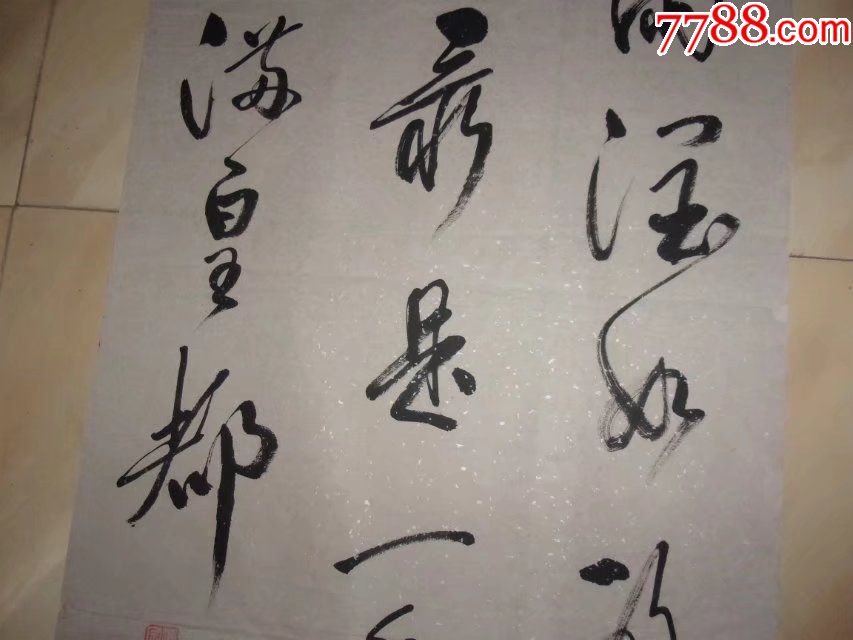 7788.com
润如
最是一
满皇都